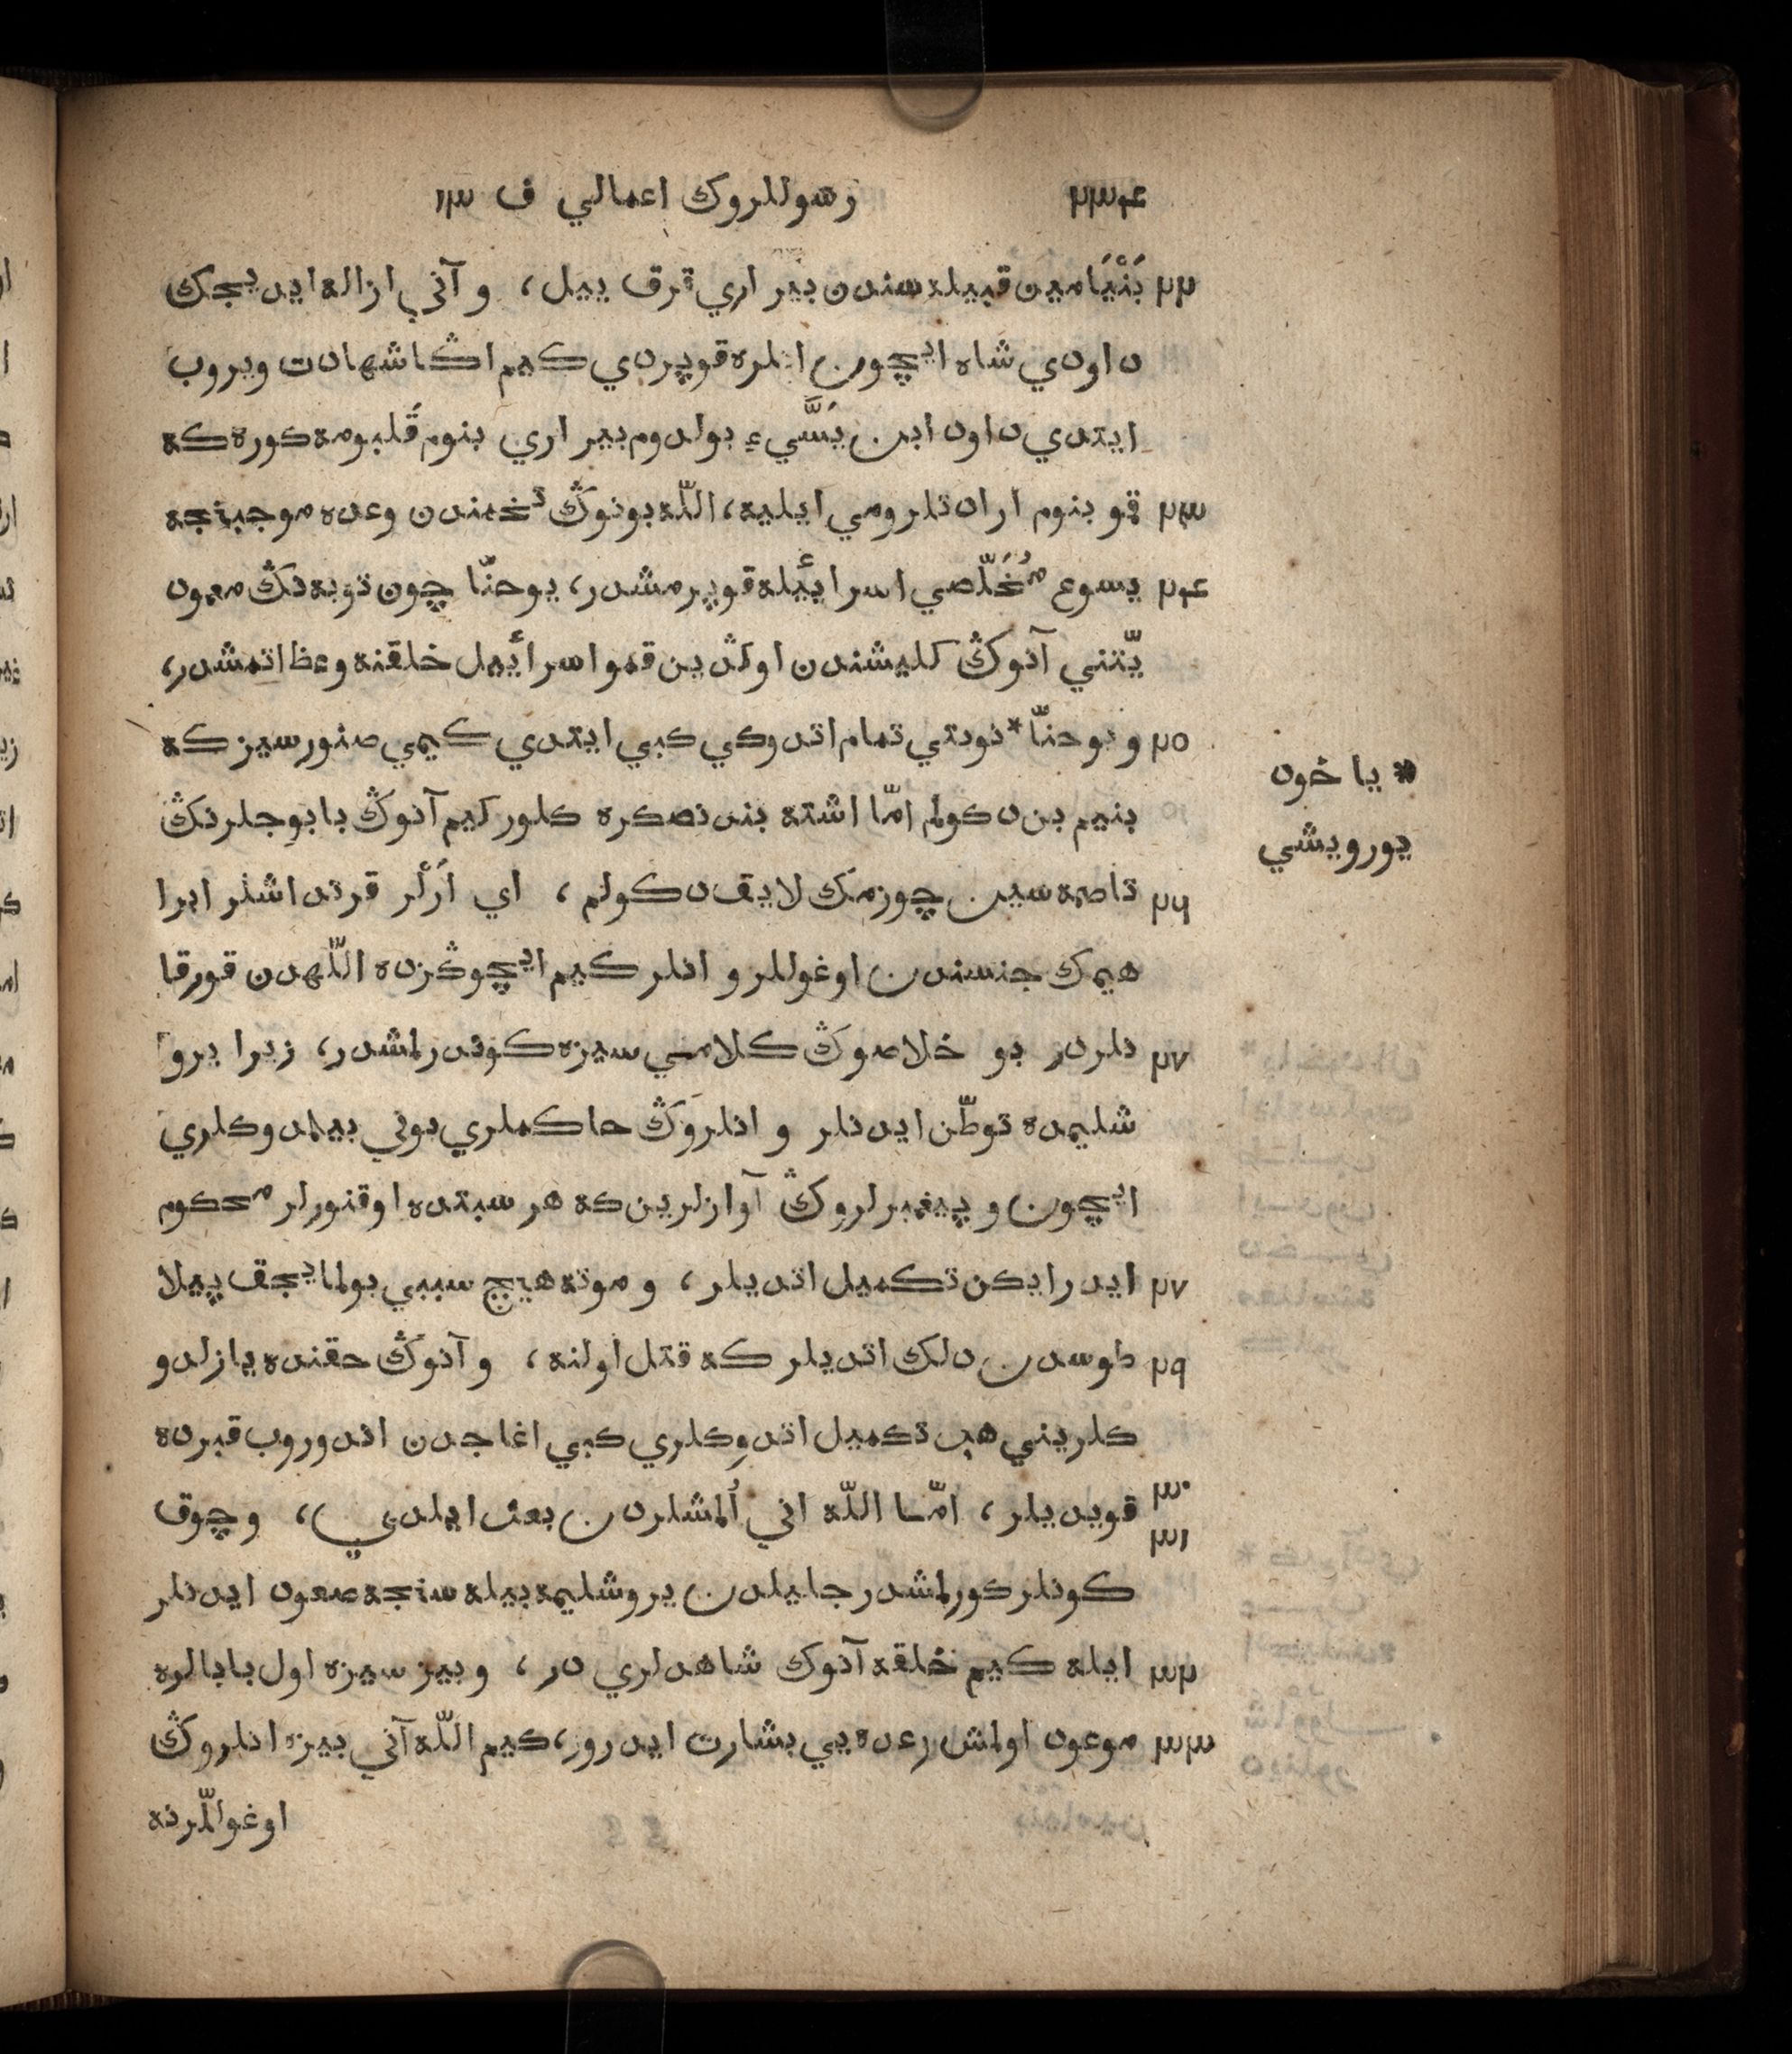 ٢٣٤ رسوللروك اعمالي ف ١٣
٢٢ بَنْيَامين قبيله سندن بير اري قرق ييل، و آني ازاله ايديجك
داودي شاه ايچون انلره قوپردي كيم اڭا شهادت ويروب
ايتدي داود ابن يَسَّيءِ بولدوم بير اري بنوم قَلبومه كوره كه
٢٣ قمو بنوم ارادتلرومي ايليه، اللّه بونوڭ تخمندن وعده موجبنجه
٢٤ يسوع مُخَلّصي اسرائيله قوپرمشدر، يوحنّا چون توبه نڭ معمود
يّتني آنوڭ كليشندن اوڭدين قمو اسرائيل خلقنه وعظ اتمشدر،
٢٥ و يوحنّا * نوبتي تمام اتدوكي كبي ايتدي كيمي صنورسيز كه
بنيم بن دكولم امّا اشته بندنصكره كلور كيم آنوڭ بابوجلرنڭ
٢٦ تاصمه سين چوزمك لايق دكولم، اي اَرْلر قرتداشلر ابرا
هيمك جنسندن اوغوللر و انلر كيم ايچوڭزده اللّهدن قورقا
٢٧ نلردر بو خلاصوڭ كلامي سيزه كوندرلمشدر، زيرا يرو
شليمده توطّن ايدنلر و انلروَڭ حاكملري بوني بيلمدوكلري
ايچون و پيغمبرلروڭ آوازلرين كه هر سبتده اوقنورلر محكوم
٢٧ ايدرايكن تكميل اتديلر، و موته هيچ سببي بولمايجق پيلا
٢٩ طوسدن دلك اتديلر كه قتل اولنه، و آنوڭ حقنده يازلدو
كلريني هپ تكميل اتدوكلري كبي اغاجدن اندوروب قبرده
٣٠ ٣١ قويديلر، امّا اللّه اني اُلمشلردن بعث ايلدي، و چوق
كونلر كورلمشدر جليلدن يروشليمه بيله سنجه صعود ايدنلر
٣٢ ايله كيم خلقه آنوك شاهدلري در، و بيز سيزه اول بابالره
٣٣ موعود اولمش وعده يي بشارت ايدروز، كيم اللّه آني بيزه انلروڭ
اوغوللّرنه
* يا خود
يورويشي